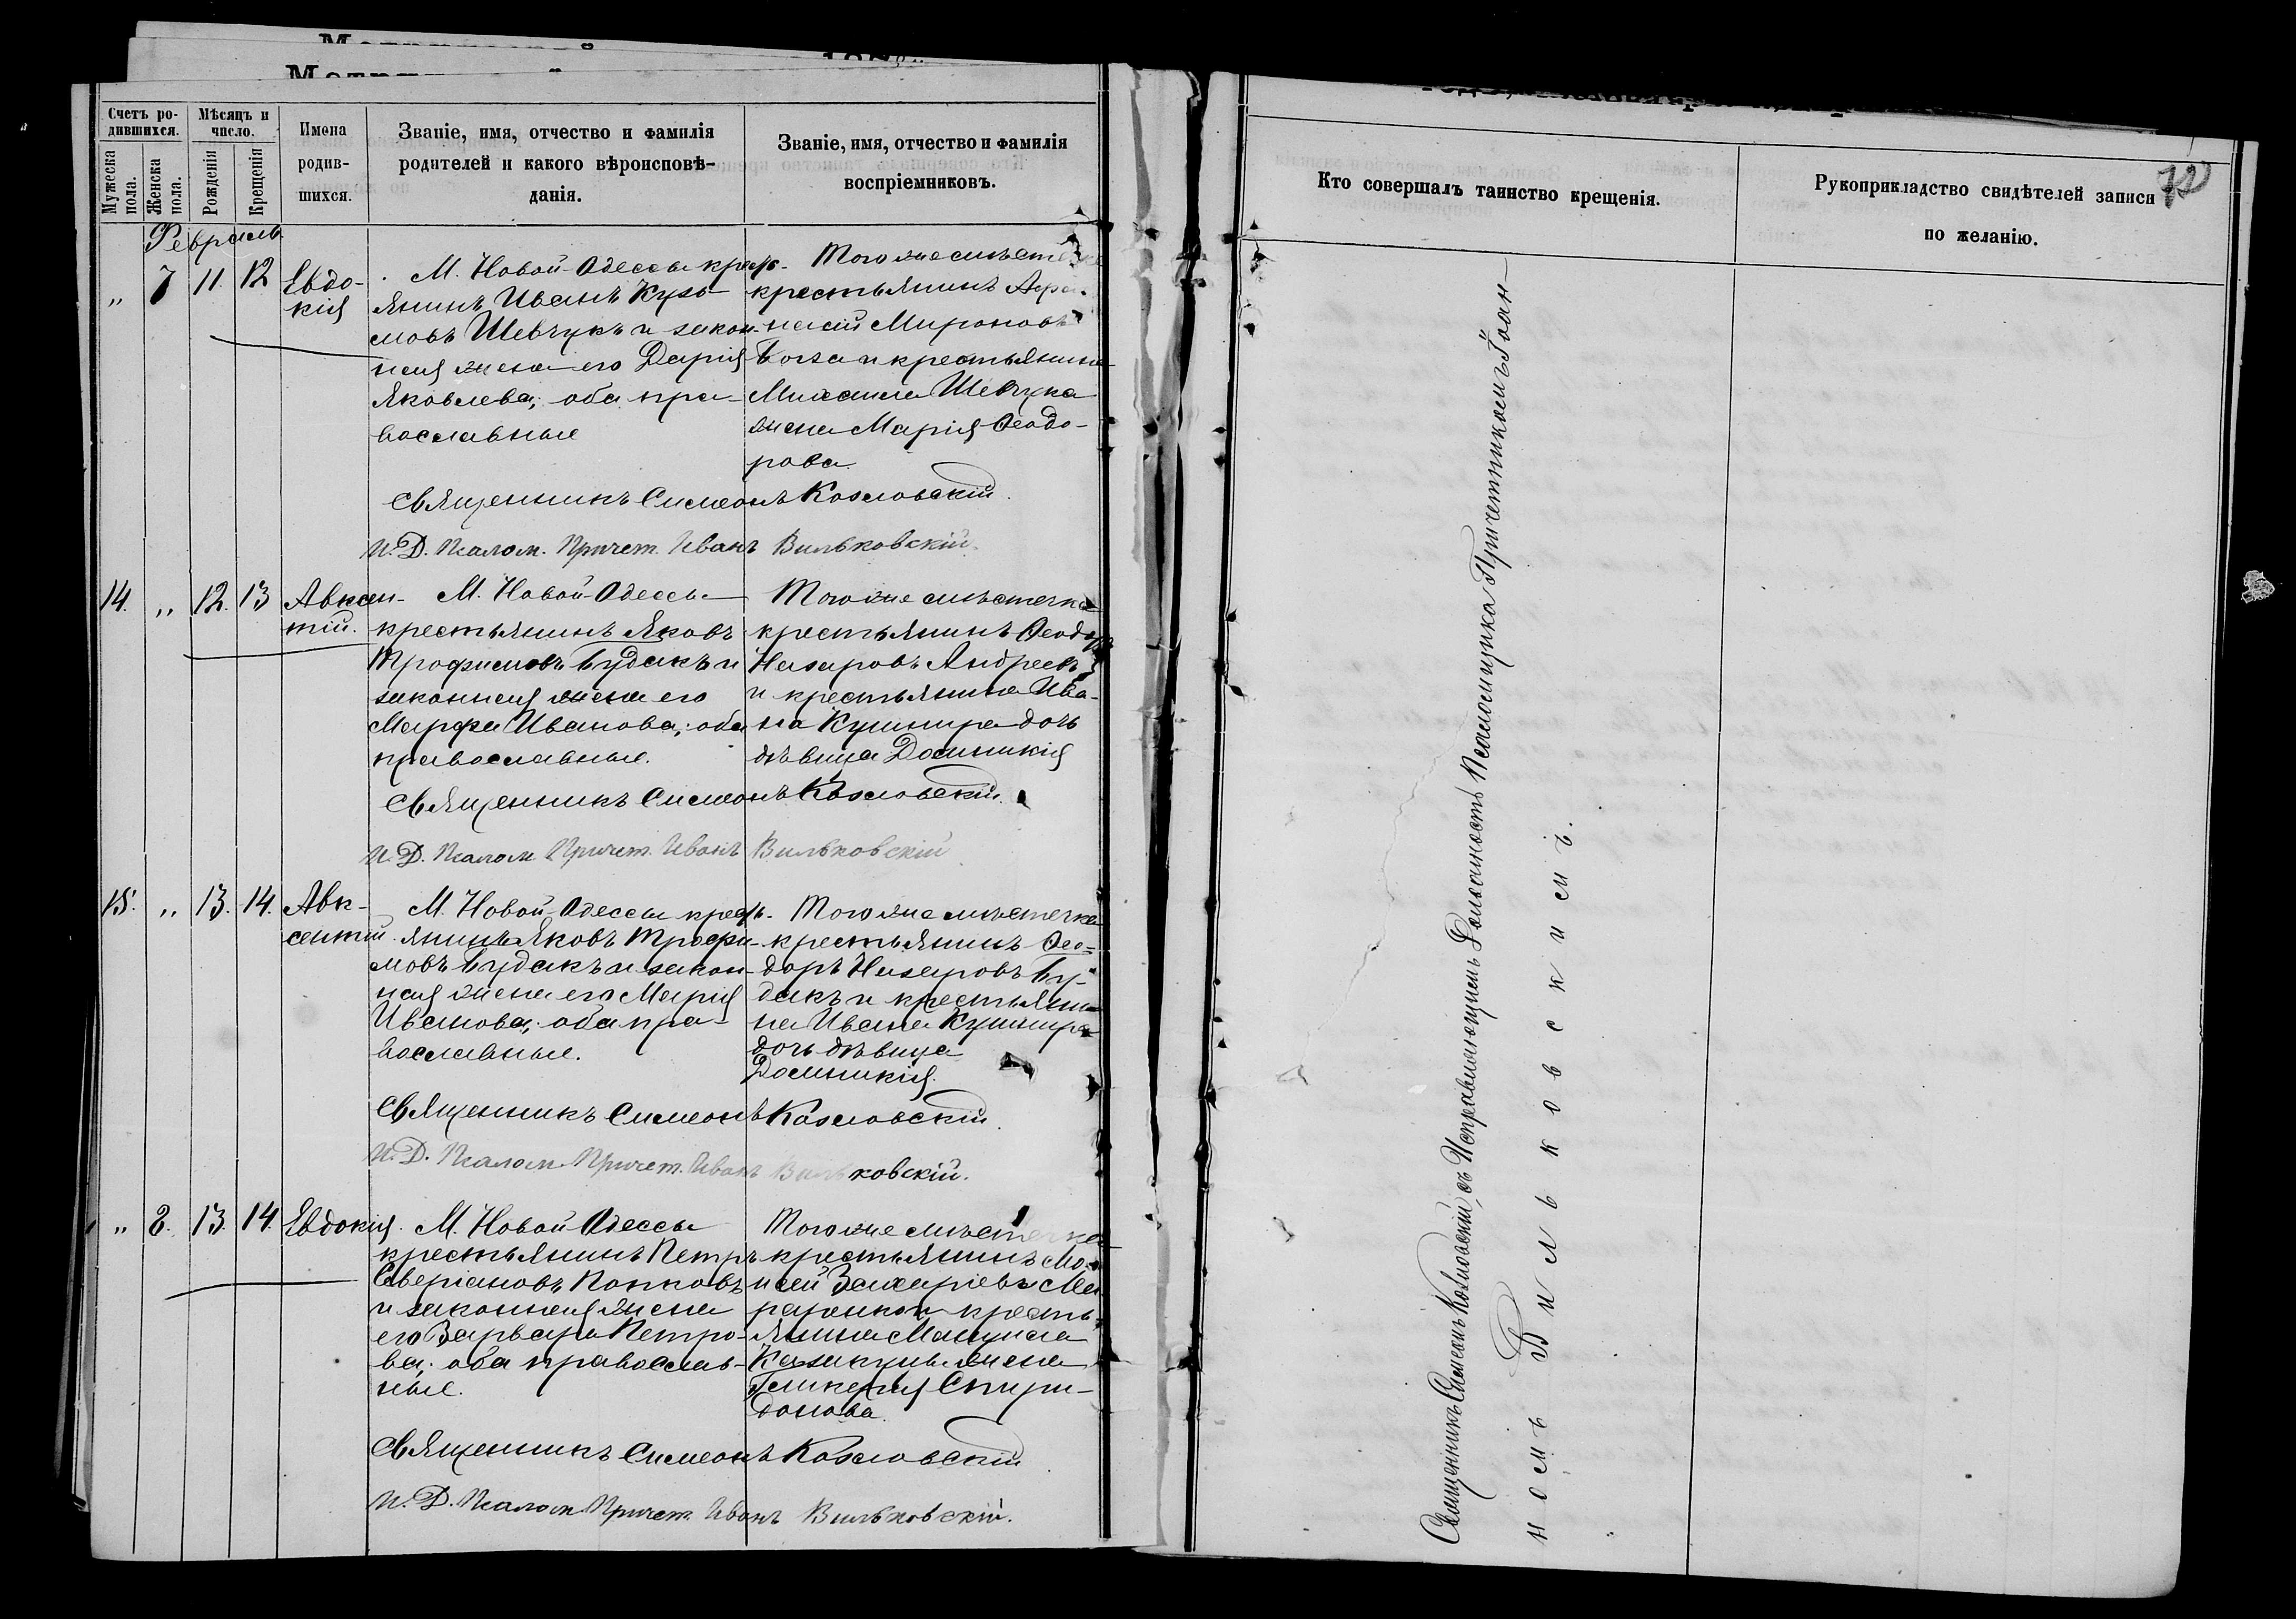 Счетъ ро-
дившихся.
Мѣсяцъ и
число.
Мужеска
пола.
Женска
пола.
Рожденія
Крещенія
Имена
родив-
шихся.
Званіе, имя, отчество и фамилія
родителей и какого вѣроисповѣ-
данія.
Званіе, имя, отчество и фамилія
воспріемниковъ.
Февраль
„ 7 11. 12
Евдо-
кія
М. Новой-Одессы кресть-
янинъ Иванъ Кузь-
мовъ Шевчукъ и закон-
ная жена его Дарія
Яковлева; оба пра-
вославные
Того же мѣстечка
крестьянинъ Афа-
насій Мироновъ
и крестьянина
Михаила Шевчука
жена Марія Ѳеодо-
рова
Священникъ Симеонъ Козловскій.
И. Д. Псалом. Причет. Иванъ Вильковскій.
14. „ 12. 13
Авксен-
тій.
М. Новой-Одессы
крестьянинъ Яковъ
Трофимовъ Будакъ и
законная жена его
Марфа Ивановна; оба
православные.
Того же мѣстечка
крестьянинъ Ѳеодоръ
Назаровъ Андреевъ
и крестьянина Ива-
на Кушнира дочь
дѣвица Домникія
Священникъ Симеонъ Козловскій.
И. Д. Псалом Причет. Иванъ Вильковскій
15. „ 13. 14.
Авк-
сентій
М. Новой-Одессы кресть-
янинъ Яковъ Трофи-
мовъ Будакъ и закон-
ная жена его Марія
Иванова; оба пра-
вославные.
Того же мѣстечка
крестьянинъ Ѳео-
доръ Назаровъ Бу-
дакъ и крестьяни-
на Ивана Кушнира
дочь дѣвица
Домникія.
Священникъ Симеонъ Козловскій.
И. Д. Псалом Причет. Иванъ Вильковскій.
„ 8. 13. 14.
Евдокія.
М. Новой Одессы
крестьянинъ Петръ
Северіановъ Попковъ
и законная жена
его Варвара Петро-
ва; оба православ-
ные.
Того же мѣстечка
крестьянинъ Мо-
исей Захаріевъ
и кресть-
янина Мануила
жена
Гликерія Спири-
донова.
Священникъ Симеонъ Козловскій
И. Д. Псалом Причет. Иванъ Вильковскій.
Кто совершалъ таинство крещенія.
Рукоприкладство свидѣтелей записи
по желанію.
Священникъ Симеонъ Козловскій, съ Исправляющимъ Должность Псаломщика Причетникомъ Іоан-
номъ Вильковскимъ.